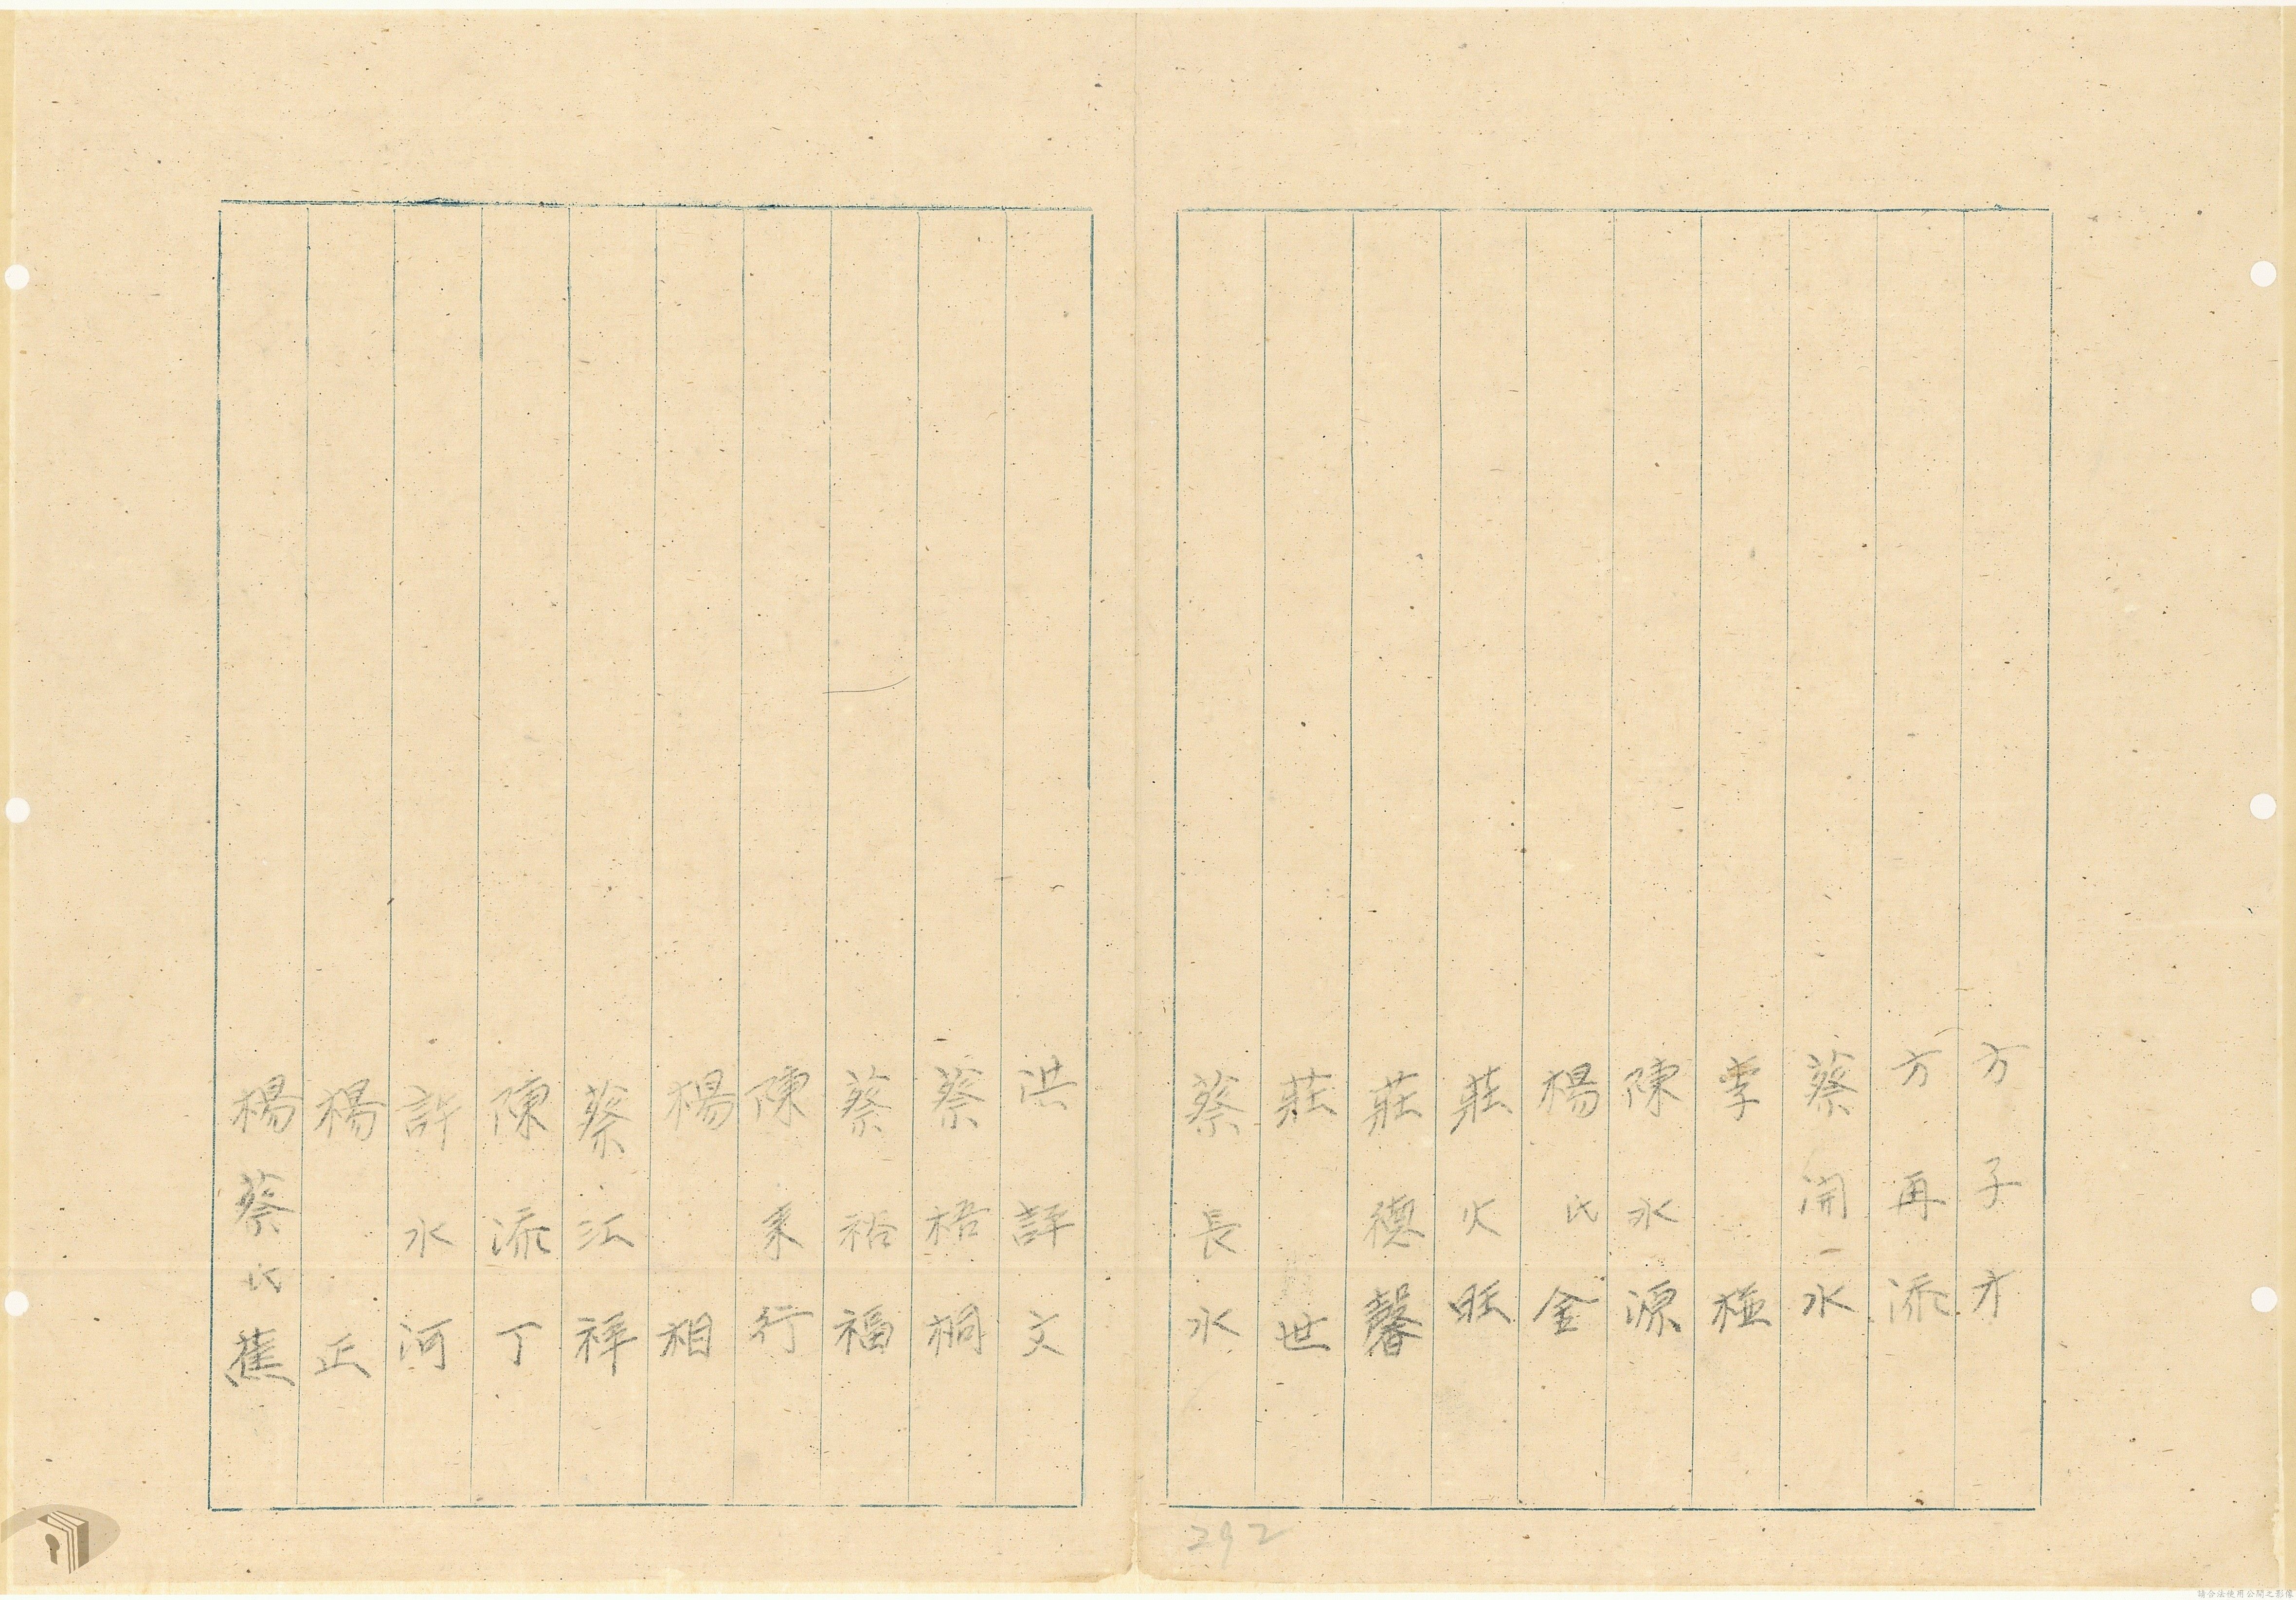 方子才
方再添
蔡開水
李極
陳水源
楊氏金
莊火旺
莊德馨
莊世
蔡長永
洪評文
蔡梧桐
蔡裕福
陳行
楊相
蔡江祥
陳添丁
許水河
楊正
楊蔡氏蕉
292
請合法使用公開之影像